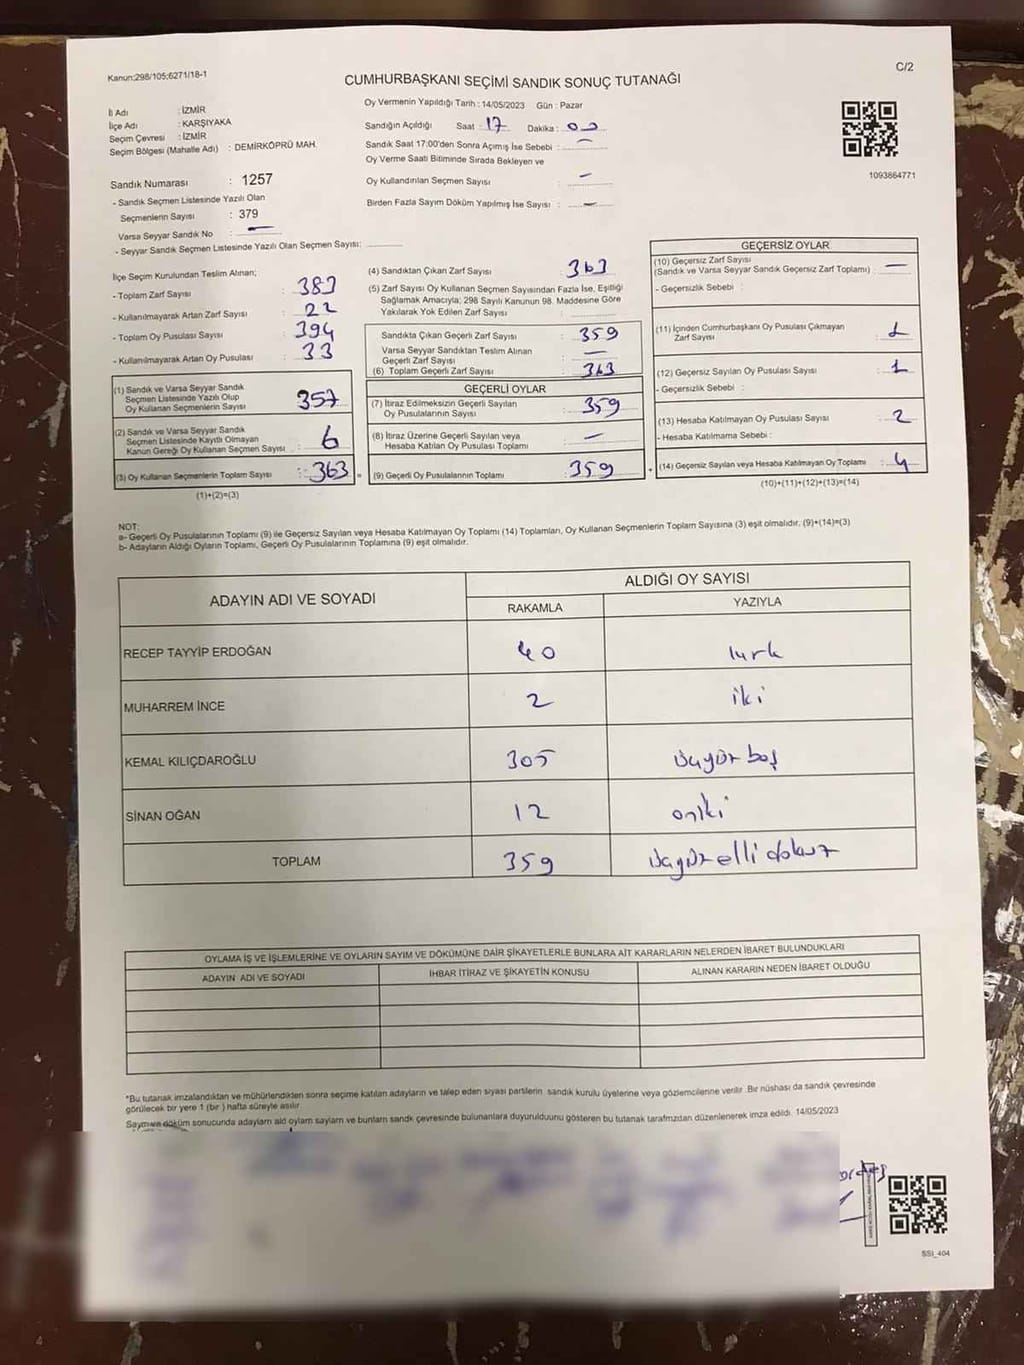 Kanun:298/105;6271/18-1
C/2
CUMHURBAŞKANI SEÇİMİ SANDIK SONUÇ TUTANAĞI
İl Adı : İZMİR
İlçe Adı : KARŞIYAKA
Seçim Çevresi : İZMİR
Seçim Bölgesi (Mahalle Adı) : DEMİRKÖPRÜ MAH.
Oy Vermenin Yapıldığı Tarih : 14/05/2023 Gün : Pazar
Sandığın Açıldığı Saat : 17 Dakika : 00
Sandık Saat 17:00'den Sonra Açılmış İse Sebebi : —
Oy Verme Saati Bitiminde Sırada Bekleyen ve
Oy Kullandırılan Seçmen Sayısı : —
Birden Fazla Sayım Döküm Yapılmış İse Sayısı : —
1093864771
Sandık Numarası : 1257
- Sandık Seçmen Listesinde Yazılı Olan
Seçmenlerin Sayısı : 379
Varsa Seyyar Sandık No : —
- Seyyar Sandık Seçmen Listesinde Yazılı Olan Seçmen Sayısı:
İlçe Seçim Kurulundan Teslim Alınan;
- Toplam Zarf Sayısı : 383
- Kullanılmayarak Artan Zarf Sayısı : 22
- Toplam Oy Pusulası Sayısı : 394
- Kullanılmayarak Artan Oy Pusulası : 33
(1) Sandık ve Varsa Seyyar Sandık
Seçmen Listesinde Yazılı Olup
Oy Kullanan Seçmenlerin Sayısı : 357
(2) Sandık ve Varsa Seyyar Sandık
Seçmen Listesinde Kayıtlı Olmayan
Kanun Gereği Oy Kullanan Seçmen Sayısı : 6
(3) Oy Kullanan Seçmenlerin Toplam Sayısı : 363
(1)+(2)=(3)
(4) Sandıktan Çıkan Zarf Sayısı : 363
(5) Zarf Sayısı Oy Kullanan Seçmen Sayısından Fazla İse, Eşitliği
Sağlamak Amacıyla; 298 Sayılı Kanunun 98. Maddesine Göre
Yakılarak Yok Edilen Zarf Sayısı :
Sandıkta Çıkan Geçerli Zarf Sayısı : 359
Varsa Seyyar Sandıktan Teslim Alınan
Geçerli Zarf Sayısı : —
(6) Toplam Geçerli Zarf Sayısı : 363
GEÇERLİ OYLAR
(7) İtiraz Edilmeksizin Geçerli Sayılan
Oy Pusulalarının Sayısı : 359
(8) İtiraz Üzerine Geçerli Sayılan veya
Hesaba Katılan Oy Pusulası Toplamı : —
(9) Geçerli Oy Pusulalarının Toplamı : 359
GEÇERSİZ OYLAR
(10) Geçersiz Zarf Sayısı
(Sandık ve Varsa Seyyar Sandık Geçersiz Zarf Toplamı) : —
- Geçersizlik Sebebi :
(11) İçinden Cumhurbaşkanı Oy Pusulası Çıkmayan
Zarf Sayısı : 1
(12) Geçersiz Sayılan Oy Pusulası Sayısı : 1
- Geçersizlik Sebebi :
(13) Hesaba Katılmayan Oy Pusulası Sayısı : 2
- Hesaba Katılmama Sebebi :
(14) Geçersiz Sayılan veya Hesaba Katılmayan Oy Toplamı : 4
(10)+(11)+(12)+(13)=(14)
NOT:
a- Geçerli Oy Pusulalarının Toplamı (9) ile Geçersiz Sayılan veya Hesaba Katılmayan Oy Toplamı (14) Toplamları, Oy Kullanan Seçmenlerin Toplam Sayısına (3) eşit olmalıdır. (9)+(14)=(3)
b- Adayların Aldığı Oyların Toplamı, Geçerli Oy Pusulalarının Toplamına (9) eşit olmalıdır.
ADAYIN ADI VE SOYADI
ALDIĞI OY SAYISI
RAKAMLA YAZIYLA
RECEP TAYYİP ERDOĞAN 40 kırk
MUHARREM İNCE 2 iki
KEMAL KILIÇDAROĞLU 305 üçyüz beş
SİNAN OĞAN 12 oniki
TOPLAM 359 üçyüz elli dokuz
OYLAMA İŞ VE İŞLEMLERİNE VE OYLARIN SAYIM VE DÖKÜMÜNE DAİR ŞİKAYETLERLE BUNLARA AİT KARARLARIN NELERDEN İBARET BULUNDUKLARI
ADAYIN ADI VE SOYADI İHBAR İTİRAZ VE ŞİKAYETİN KONUSU ALINAN KARARIN NEDEN İBARET OLDUĞU
*Bu tutanak imzalandıktan ve mühürlendikten sonra seçime katılan adayların ve talep eden siyasi partilerin sandık kurulu üyelerine veya gözlemcilerine verilir. Bir nüshası da sandık çevresinde
görülecek bir yere 1 (bir ) hafta süreyle asılır.
Sayım ve döküm sonucunda adayların aid oylarm saylarm ve bunlarm sandk çevresinde bulunanlara duyurulduunu gösteren bu tutanak tarafmzdan düzenlenerek imza edildi. 14/05/2023
SSI_404